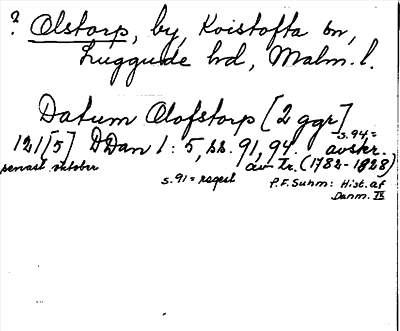 ? Olstorp, by, Kvistofta sn,
Luggude hd, Malm. l.
Datum Olofstorp [2 ggr]
s. 94 =
121[5] DDan 1 : 5, ss. 91, 94. avskr.
senast oktober av tr. (1782-1828)
s. 91 = regest P. F. Suhm: Hist. af
Danm. IX